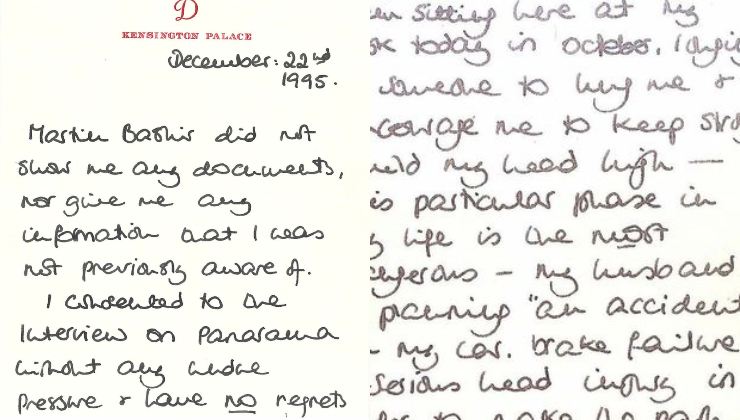 D
KENSINGTON PALACE
December: 22nd
1995.
Martin Bashir did not
show me any documents,
nor give me any
information that I was
not previously aware of.
I consented to the
interview on Panorama
without any undue
pressure & have no regrets
sitting here at my
today in october, longi
someone to hug me &
courage me to keep stro
my head high —
is particular phase in
life is the most
angerous – my husband
planning "an accident
my car. brake failure
serious head injury in
to make